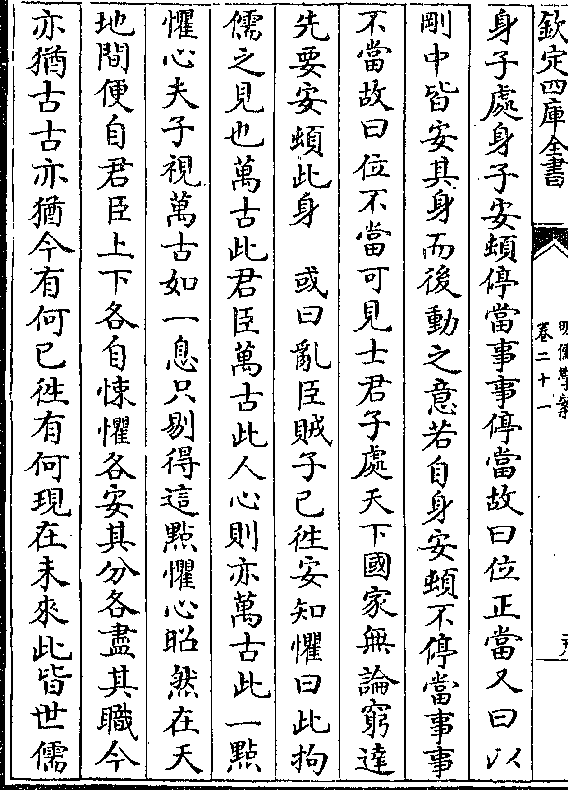 欽定四庫全書
明儒學案
卷二十一
身子處身子安頓停當事事停當故曰位正當又曰以
剛中皆安其身而後動之意若自身安頓不停當事事
不當故曰位不當可見士君子處天下國家無論窮達
先要安頓此身　或曰亂臣賊子已徃安知懼曰此拘
儒之見也萬古此君臣萬古此人心則亦萬古此一點
懼心夫子視萬古如一息只剔得這點懼心昭然在天
地間便自君臣上下各自悚懼各安其分各盡其職今
亦猶古古亦猶今有何已徃有何現在未來此皆世儒